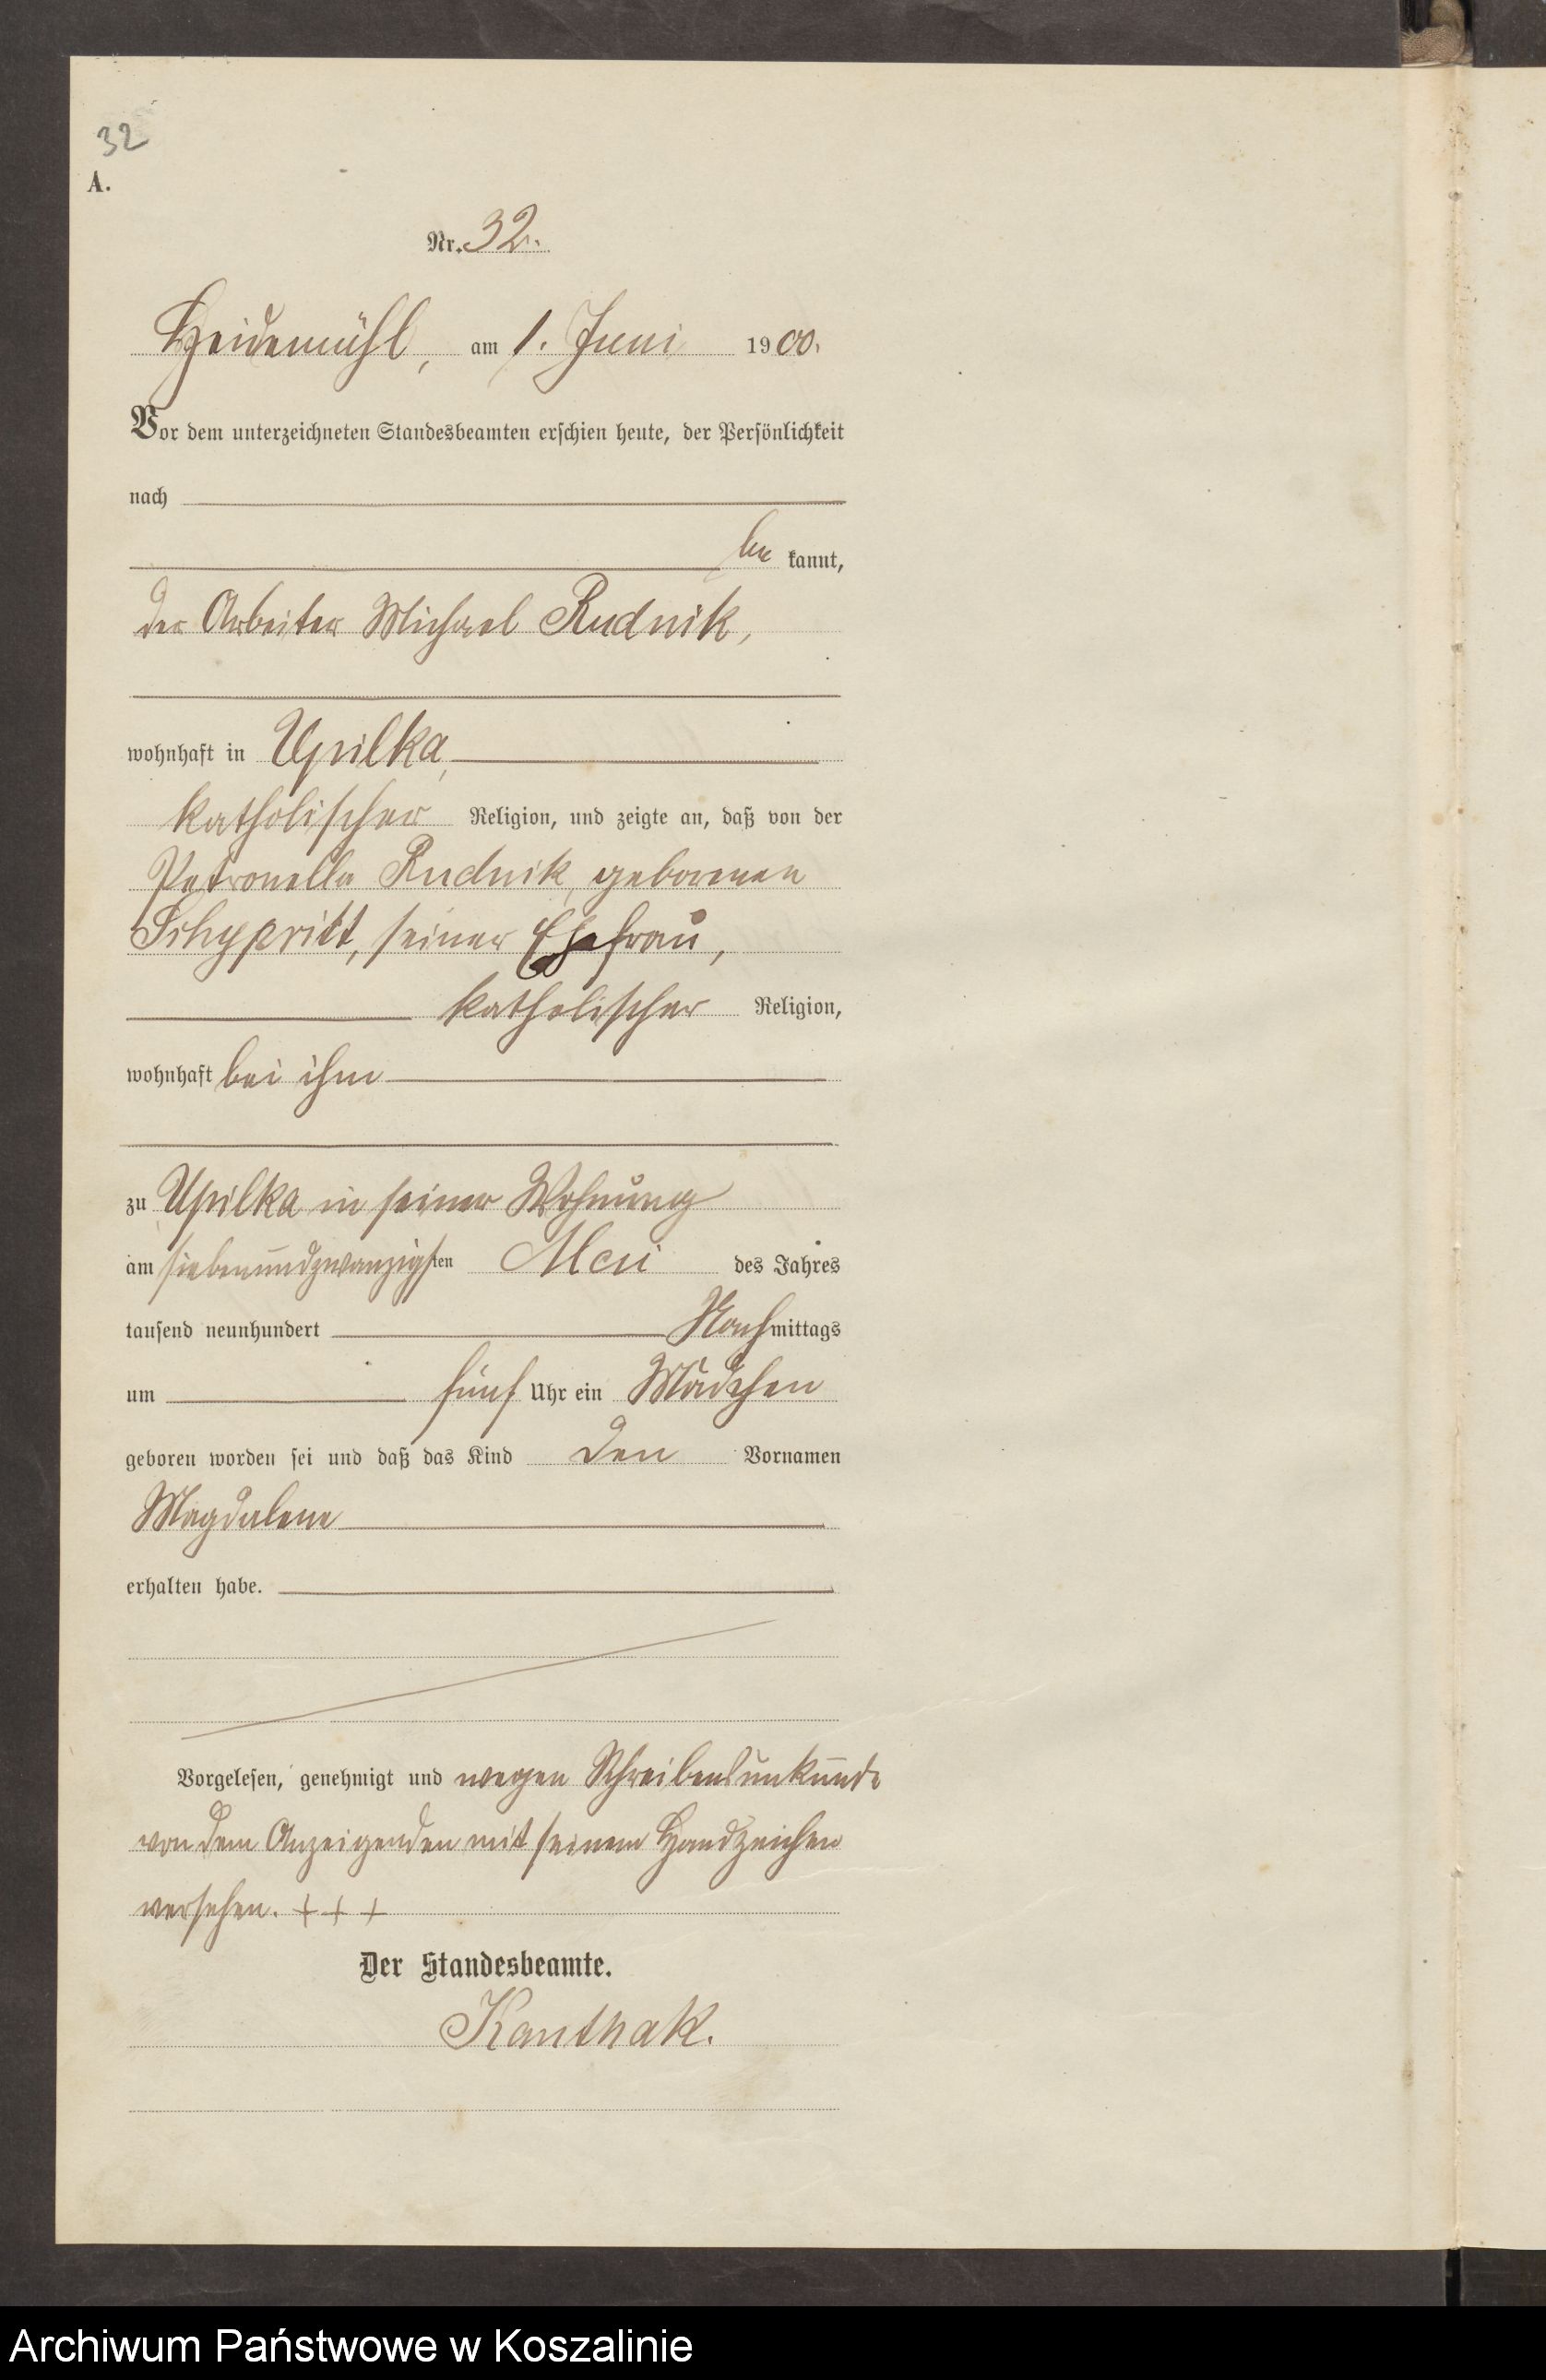 32
A.
Nr. 32.
Heidemühl, am 1. Juni 1900.
Vor dem unterzeichneten Standesbeamten erschien heute, der Persönlichkeit
nach
be kannt,
der Arbeiter Michael Rudnik,
wohnhaft in Upilka,
katholischer Religion, und zeigte an, daß von der
Petronella Rudnik, geborenen
Schypritt, seiner Ehefrau,
katholischer Religion,
wohnhaft bei ihm
zu Upilka in seiner Wohnung
am siebenundzwanzigsten Mai des Jahres
tausend neunhundert Nachmittags
um fünf Uhr ein Mädchen
geboren worden sei und daß das Kind den Vornamen
Magdalene
erhalten habe.
Vorgelesen, genehmigt und wegen Schreibensunkunde
von dem Anzeigenden mit seinem Handzeichen
versehen. + + +
Der Standesbeamte.
Kanthak.
Archiwum Państwowe w Koszalinie